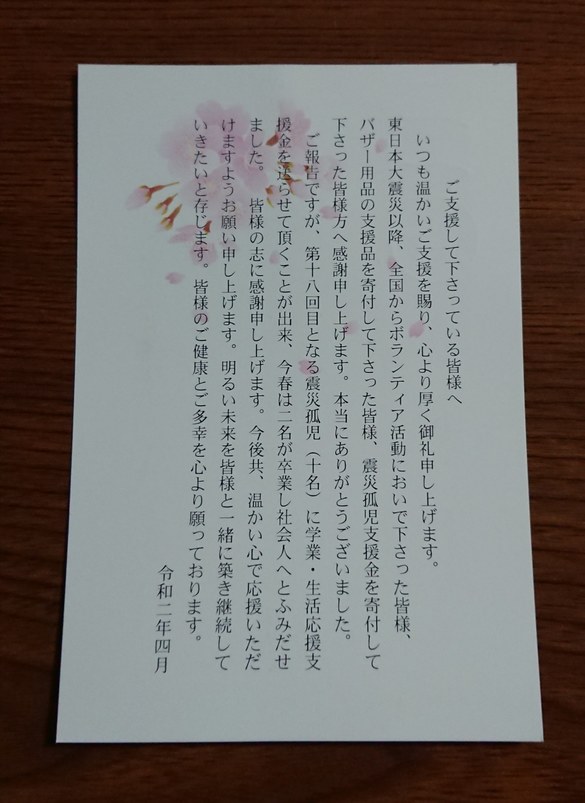 ご支援して下さっている皆様へ
いつも温かいご支援を賜り、心より厚く御礼申し上げます。
東日本大震災以降、全国からボランティア活動においで下さった皆様、
バザー用品の支援品を寄付して下さった皆様、震災孤児支援金を寄付して
下さった皆様方へ感謝申し上げます。本当にありがとうございました。
ご報告ですが、第十八回目となる震災孤児(十名)に学業・生活応援支
援金を送らせて頂くことが出来、今春は二名が卒業し社会人へとふみだせ
ました。 皆様の志に感謝申し上げます。今後共、温かい心で応援いただ
けますようお願い申し上げます。明るい未来を皆様と一緒に築き継続して
いきたいと存じます。皆様のご健康とご多幸を心より願っております。
令和二年四月